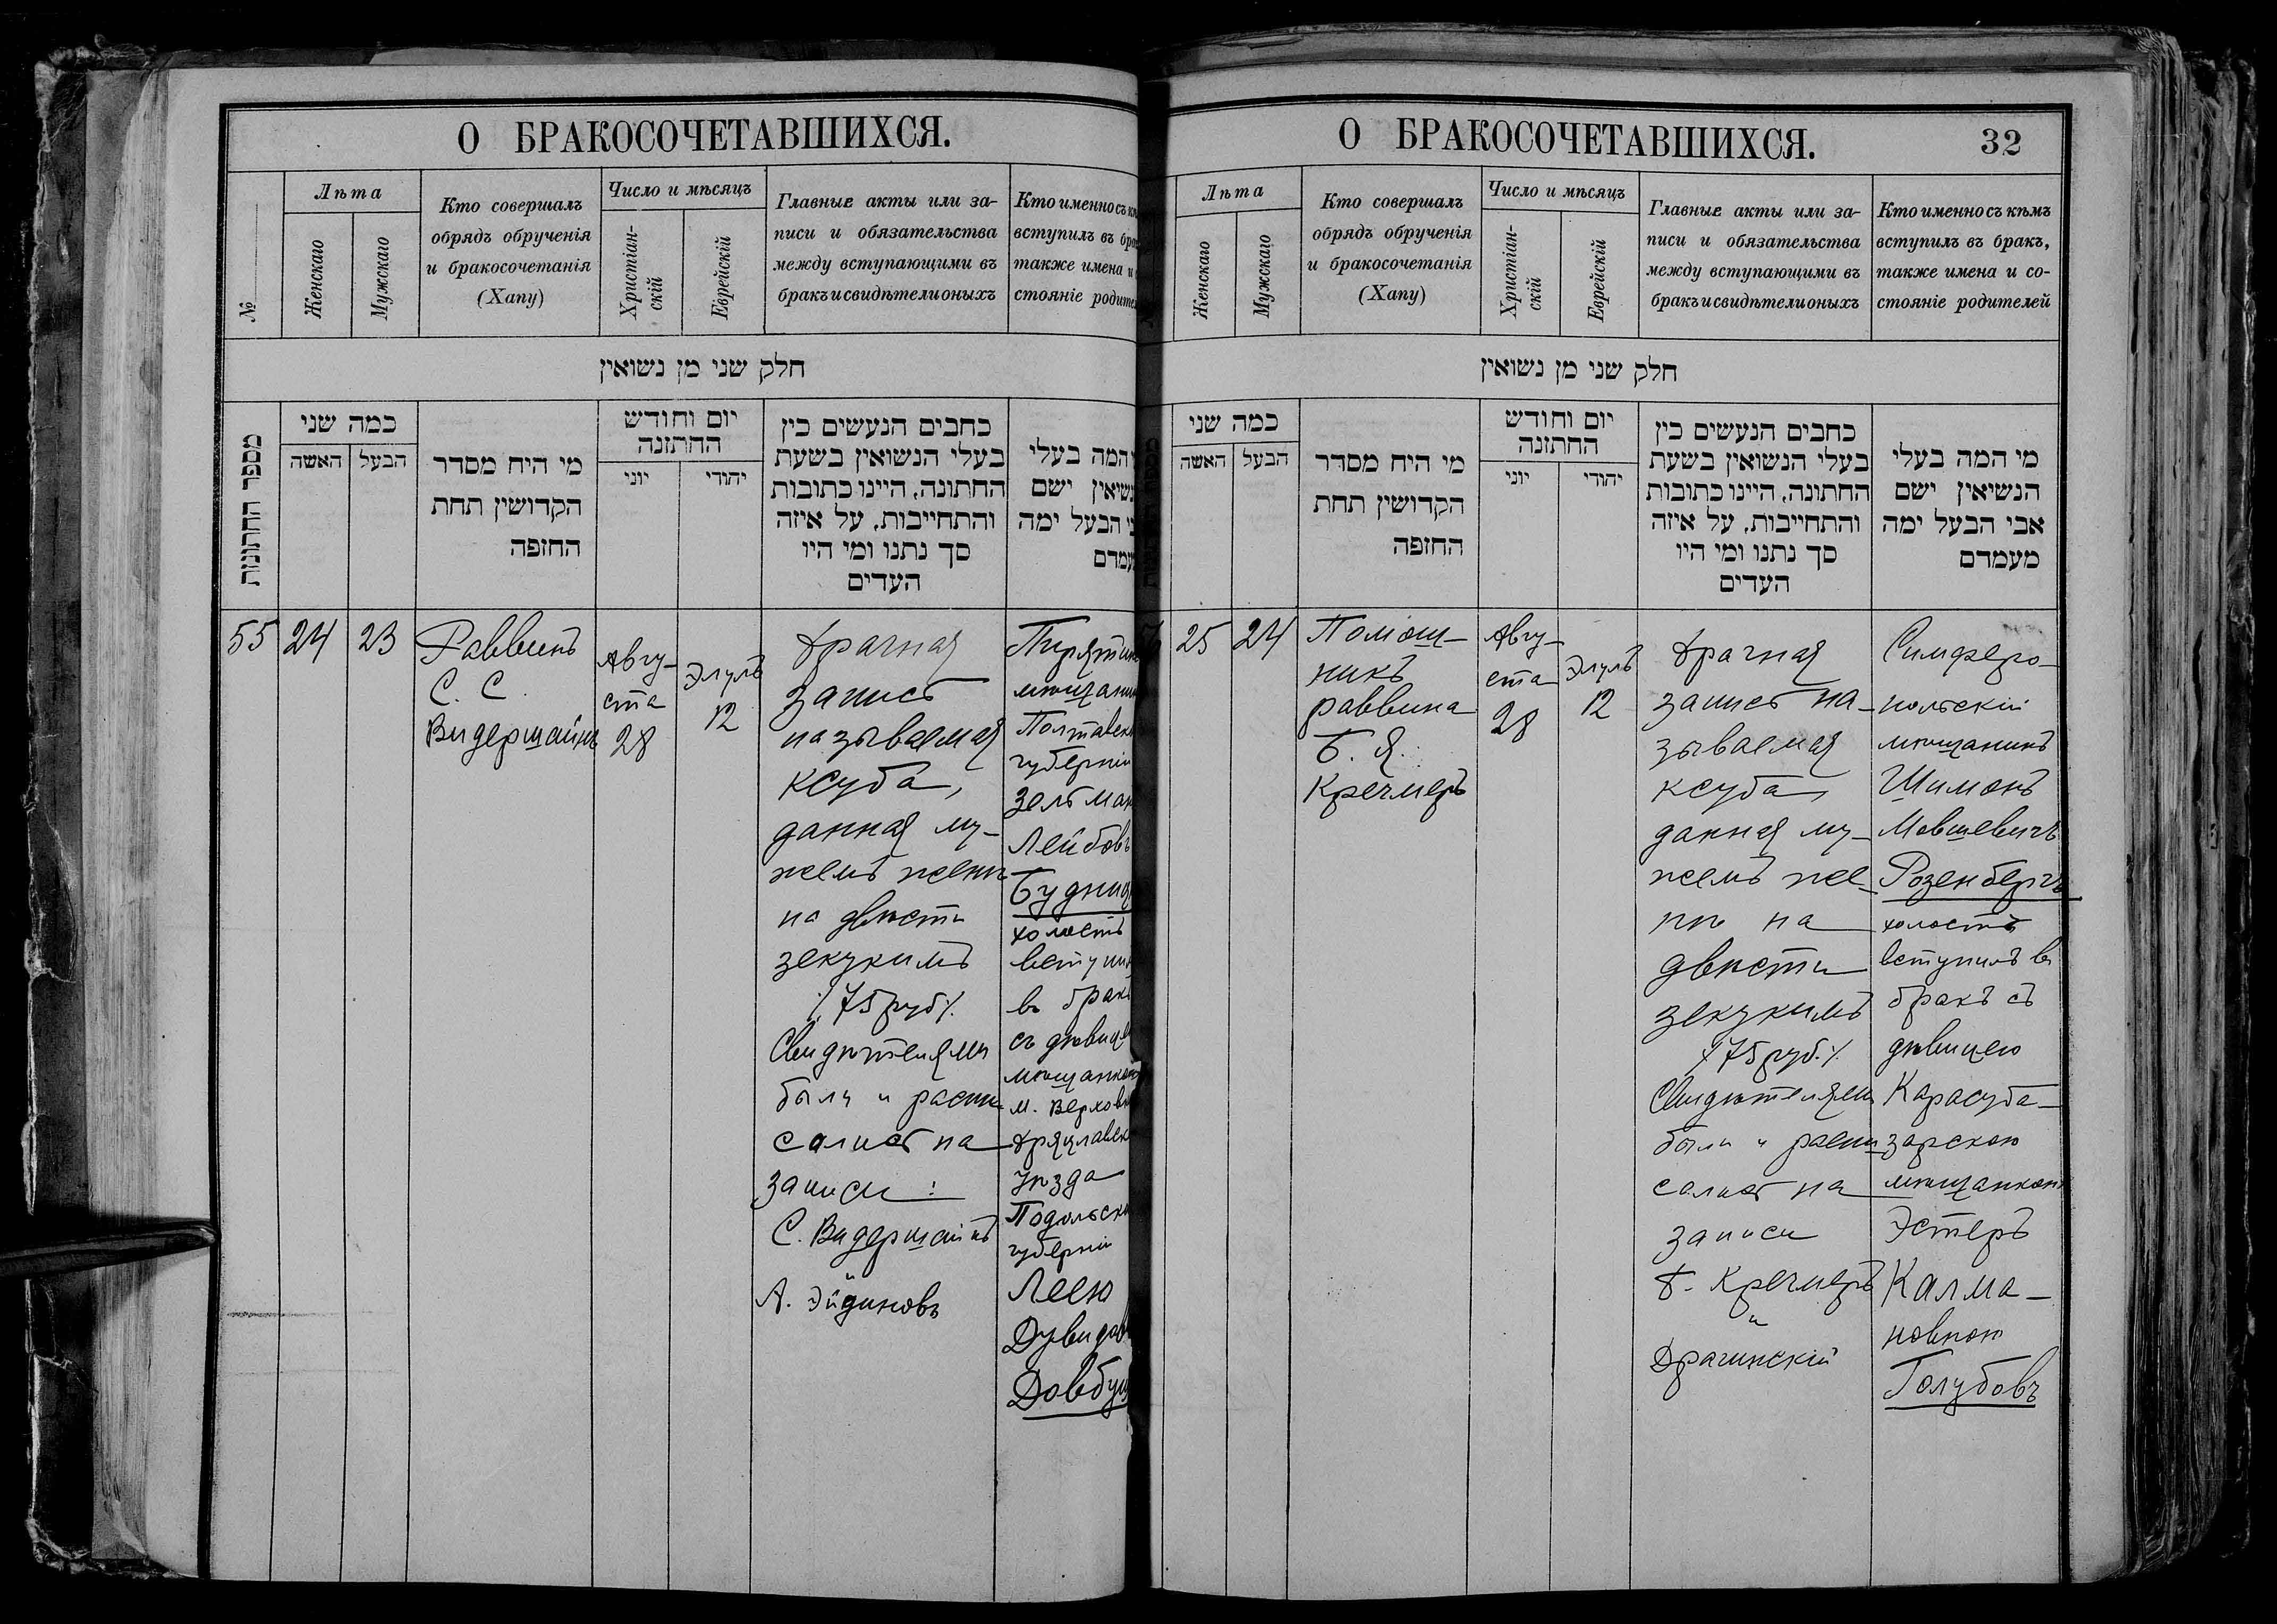 О БРАКОСОЧЕТАВШИХСЯ.
№
Лѣта
Женскаго
Мужскаго
Кто совершалъ
обрядъ обрученія
и бракосочетанія
(Хапу)
Число и мѣсяцъ
Христіан-
скій
Еврейскій
Главные акты или за-
писи и обязательства
между вступающими въ
бракъ и свидѣтели оныхъ
Кто именно съ
вступилъ въ
также имена и
стояніе
חלק שני מן נשואין
מספר החתונות
כמה שני
האשה
הבעל
מי היח מסדר
הקדושין תחת
החופה
יום וחודש
החתונה
יוני
יהודי
כחבים הנעשים בין
בעלי הנשואין בשעת
החתונה, היינו כתובות
והתחייבות, על איזה
סך נתנו ומי היו
העדים
המה בעלי
ישם
הבעל ימה
55
24
23
Раввинъ
С. С.
Видершайнъ
Авгу-
ста
28
Элулъ
12
Брачная
запись
называемая
ксуба,
данная му-
жемъ женѣ
на двѣсти
зекукимъ
/75 руб/.
Свидѣтелями
были и распи-
сались на
записи:
С. Видершайнъ
и
А. Эйдиновъ
губерніи
холостъ
въ
съ
м.
уѣзда
губерніи
Леею
О БРАКОСОЧЕТАВШИХСЯ.
32
Лѣта
Женскаго
Мужскаго
Кто совершалъ
обрядъ обрученія
и бракосочетанія
(Хапу)
Число и мѣсяцъ
Христіан-
скій
Еврейскій
Главные акты или за-
писи и обязательства
между вступающими въ
бракъ и свидѣтели оныхъ
Кто именно съ кѣмъ
вступилъ въ бракъ,
также имена и со-
стояніе родителей
חלק שני מן נשואין
כמה שני
האשה
הבעל
מי היח מסדר
הקדושין תחת
החופה
יום וחודש
החתונה
יוני
יהודי
כחבים הנעשים בין
בעלי הנשואין בשעת
החתונה, היינו כתובות
והתחייבות, על איזה
סך נתנו ומי היו
העדים
מי המה בעלי
הנשיאין ישם
אבי הבעל ימה
מעמדם
25
24
Помощ-
никъ
раввина
Б. Я.
Кречмеръ
Авгу-
ста
28
Элулъ
12
Брачная
запись на-
зываемая
ксуба,
данная му-
жемъ же-
нѣ на
двѣсти
зекукимъ
/75 руб./.
Свидѣтелями
были и распи
сались на
записи
Б. Кречмеръ
и
Драчинскій
Симферо-
польскій
мѣщанинъ
Шимонъ
Мовшевичъ
Розенбергъ
холостъ
вступилъ въ
бракъ съ
дѣвицею
Карасуба-
зарскою
мѣщанкою
Эстеръ
Калма-
новною
Голубовъ